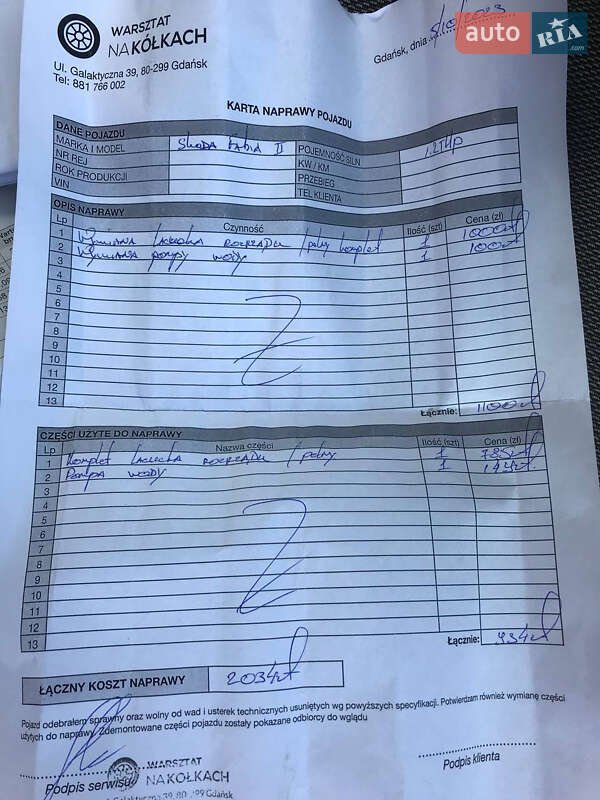 WARSZTAT
NAKÓŁKACH
Ul. Galaktyczna 39, 80-299 Gdańsk
Tel: 881 766 002
Gdańsk, dnia 5/10/2023
auto RIA.com
KARTA NAPRAWY POJAZDU
DANE POJAZDU
MARKA I MODEL Skoda Fabia II POJEMNOŚĆ SILN 1.2 TH4P
NR REJ KW / KM
ROK PRODUKCJI PRZEBIEG
VIN TEL KLIENTA
OPIS NAPRAWY
Lp Czynność Ilość (szt) Cena (zł)
1 Wymiana łańcucha rozrządu / pełny komplet 1 1000zł
2 Wymiana pompy wody 1 100zł
3
4
5
6
7
8
9
10
11
12
13
Łącznie: 1100zł
CZĘŚCI UŻYTE DO NAPRAWY
Lp Nazwa części Ilość (szt) Cena (zł)
1 Komplet łańcucha rozrządu / pełny 1 785zł
2 Pompa wody 1 149zł
3
4
5
6
7
8
9
10
11
12
13
Łącznie: 934zł
ŁĄCZNY KOSZT NAPRAWY 2034zł
Pojazd odebrałem sprawny oraz wolny od wad i usterek technicznych usuniętych wg powyższych specyfikacji. Potwierdzam również wymianę części
użytych do naprawy. Zdemontowane części pojazdu zostały pokazane odbiorcy do wglądu
Podpis serwisu
Podpis klienta
WARSZTAT
NAKÓŁKACH
Galaktyczna 39, 80-299 Gdańsk